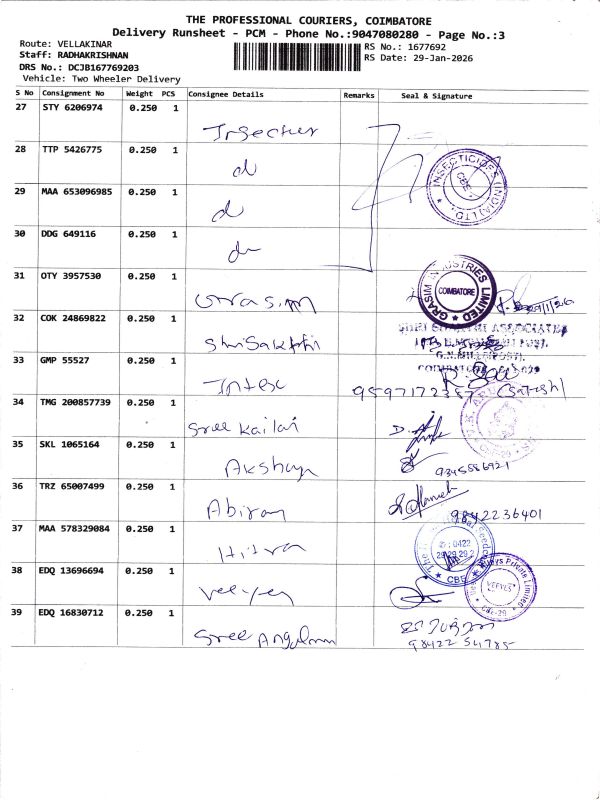 THE PROFESSIONAL COURIERS, COIMBATORE
Delivery Runsheet - PCM - Phone No.:9047080280 - Page No.:3
Route: VELLAKINAR
RS No.: 1677692
Staff: RADHAKRISHNAN
RS Date: 29-Jan-2026
DRS No.: DCJB167769203
Vehicle: Two Wheeler Delivery
S No Consignment No Weight PCS Consignee Details Remarks Seal & Signature
27 STY 6206974 0.250 1
28 TTP 5426775 0.250 1
INSECTICIDES (INDIA) LTD.
CBE
29 MAA 653096985 0.250 1
30 DDG 649116 0.250 1
31 OTY 3957530 0.250 1
Grasim
GRASIM INDUSTRIES LIMITED
COIMBATORE
32 COK 24869822 0.250 1
Shri Sakthi
33 GMP 55527 0.250 1
Intec
(Satish)
34 TMG 200857739 0.250 1
Sree Kailai
35 SKL 1065164 0.250 1
Akshaya
9345586921
36 TRZ 65007499 0.250 1
Abiram
9842236401
37 MAA 578329084 0.250 1
Hitva
CBE
38 EDQ 13696694 0.250 1
Veeyes
VEEYES
Private Limited
CBE-29
39 EDQ 16830712 0.250 1
Sree Angalman
98422 54785